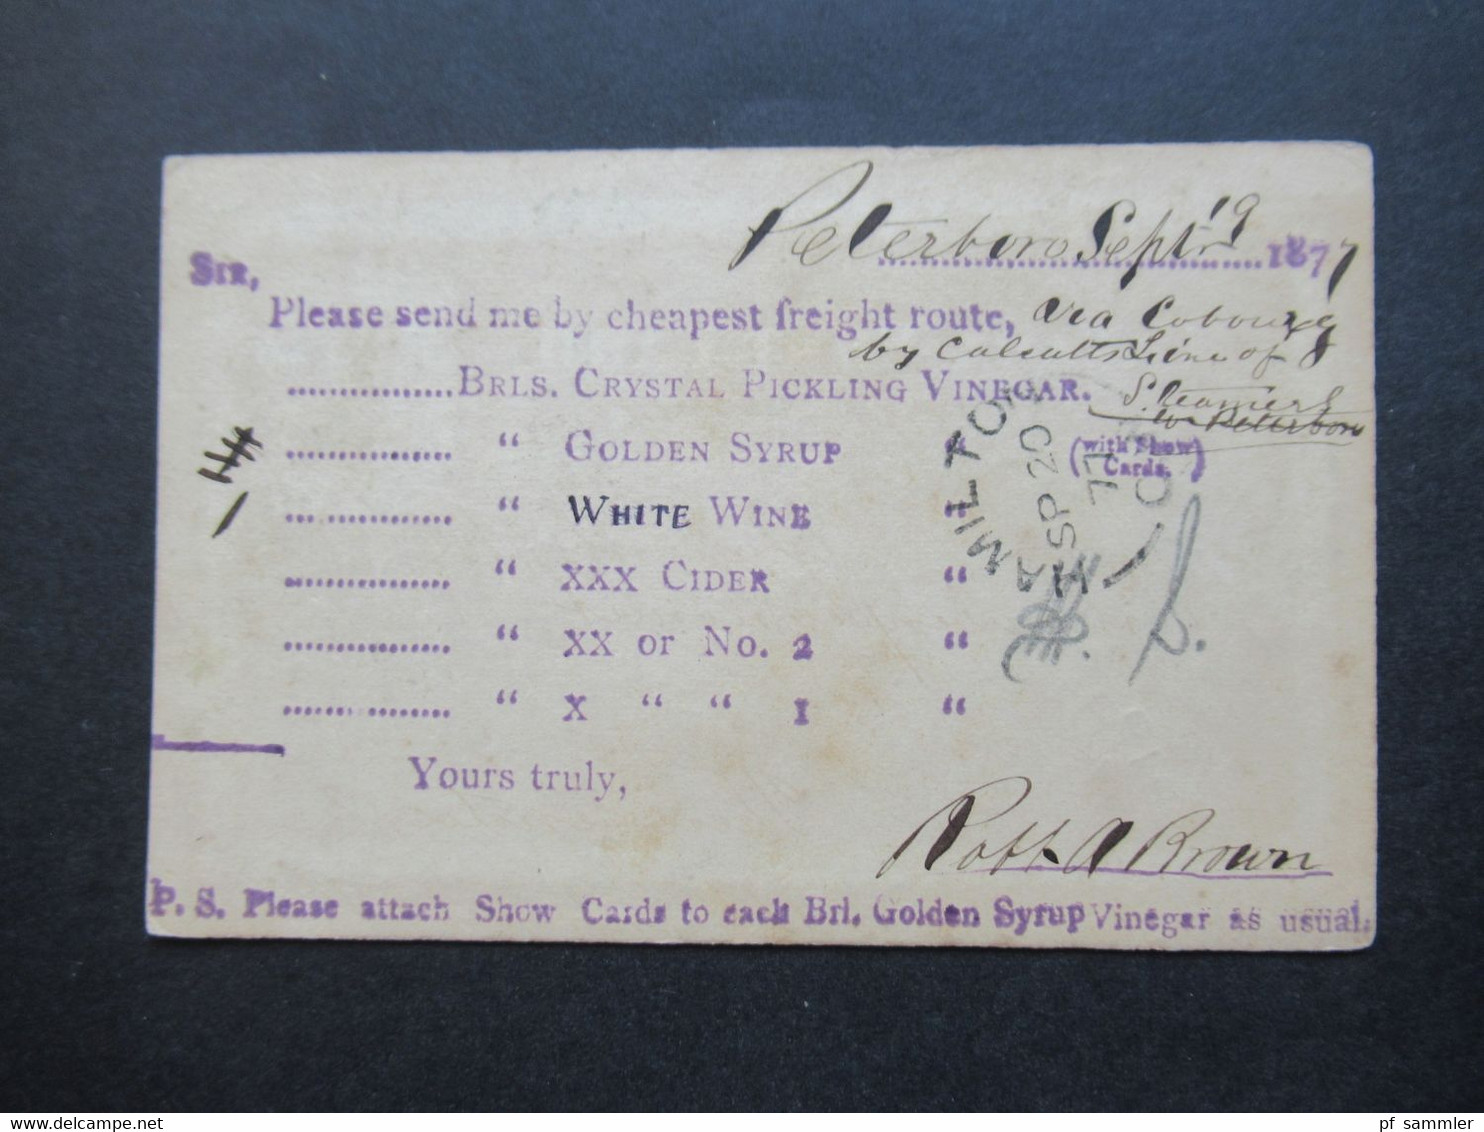 Peterboro Sept 19 1877
Sir,
Please send me by cheapest freight route, via Cobourg
by Calcutts Line of
Steamers
to Peterboro
BRLS. CRYSTAL PICKLING VINEGAR.
“ GOLDEN SYRUP “ (with Show Cards.)
“ WHITE WINE “
“ XXX CIDER “
“ XX or No. 2 “
“ X “ “ 1 “
HAMILTON
SP 20
77
Yours truly,
Robt A Brown
P. S. Please attach Show Cards to each Brl. Golden Syrup Vinegar as usual.
pf_sammler